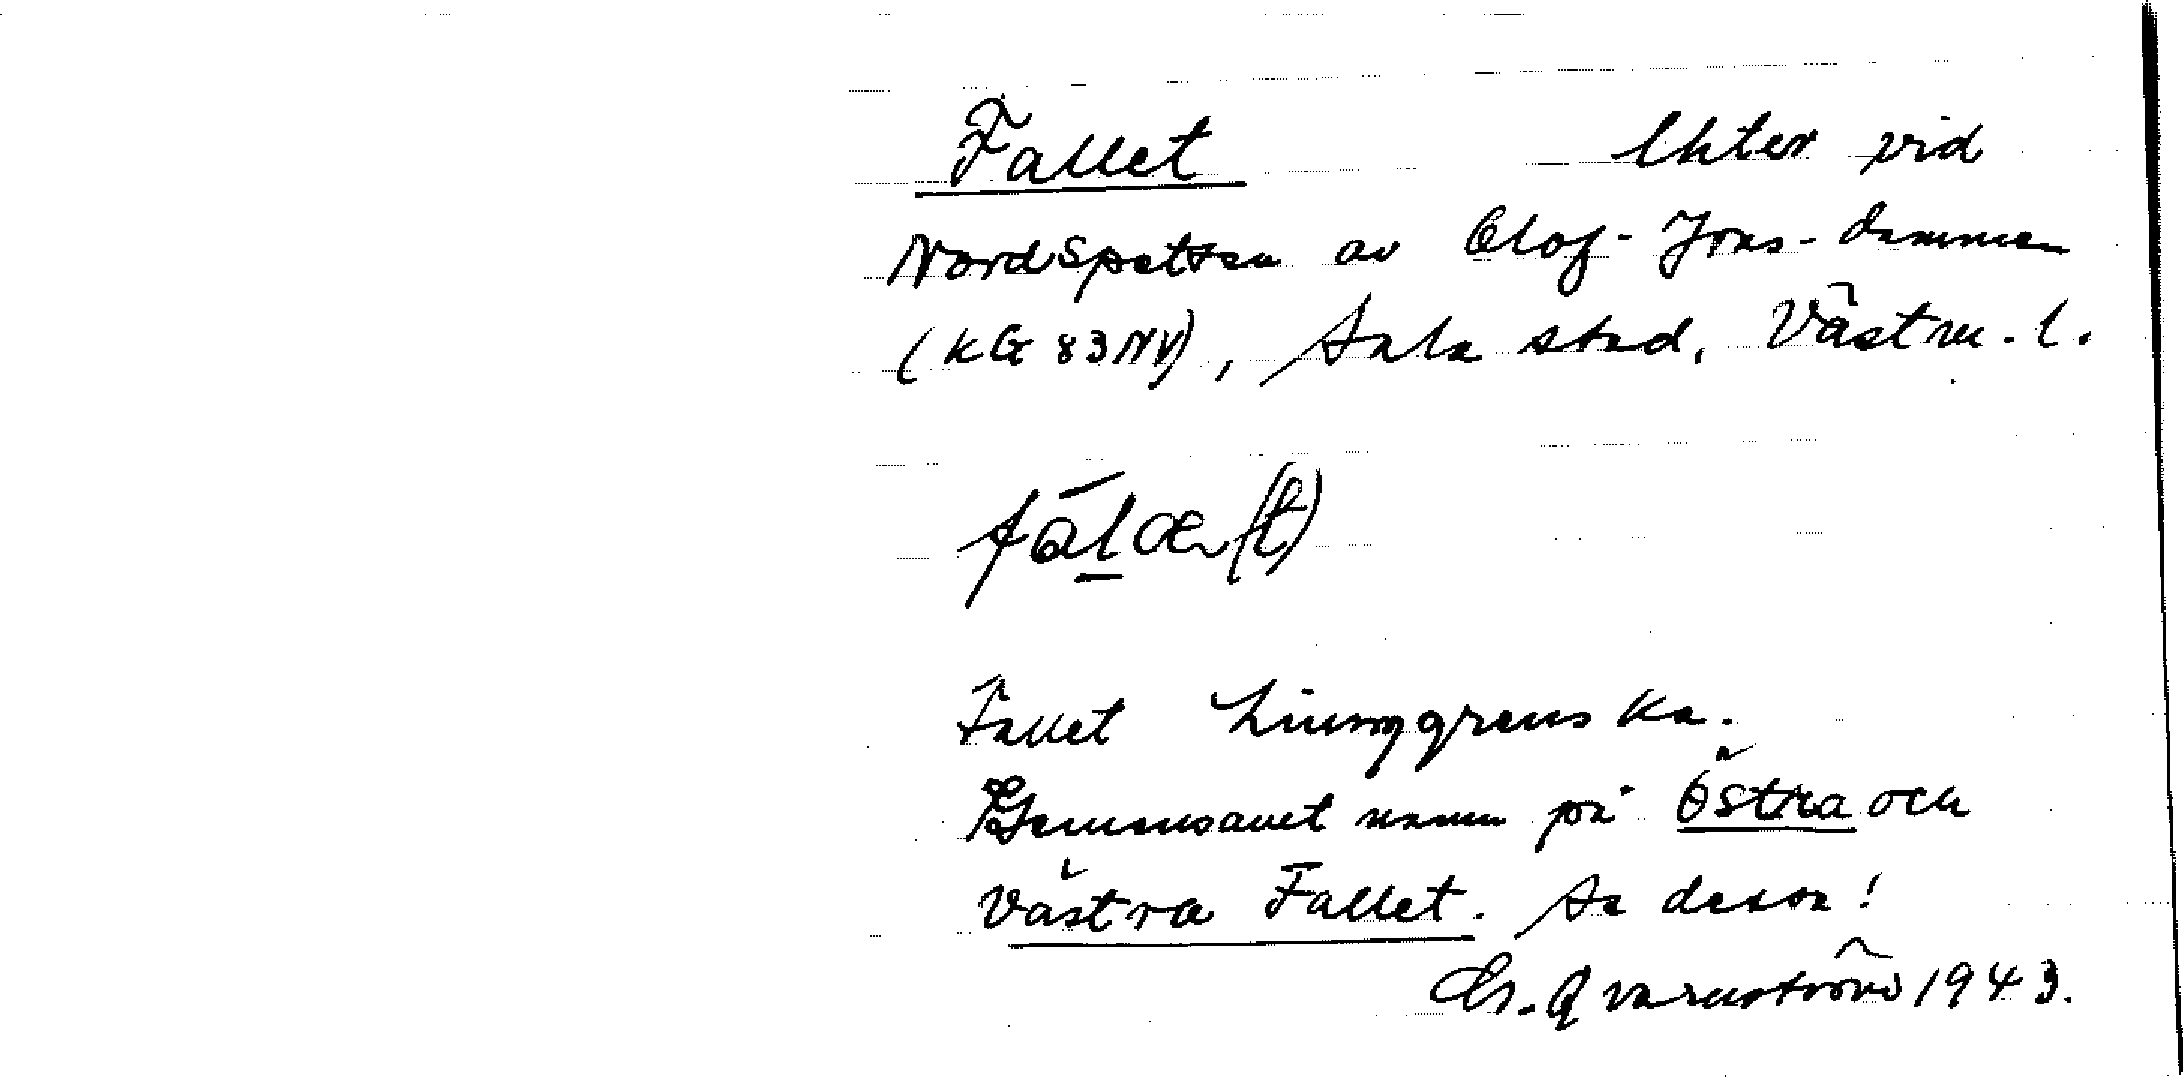 Fallet Ekter vid
Nordspetsen av Olof-Jons-dammen
(KG 83 NV), Sala stad. Västm. l.
fa̅l̲æ(t)
Fallet Ljunggrenska.
Gemensamt namn på Östra och
Västra Fallet. Se dessa!
Er. Qvarnström 1943.